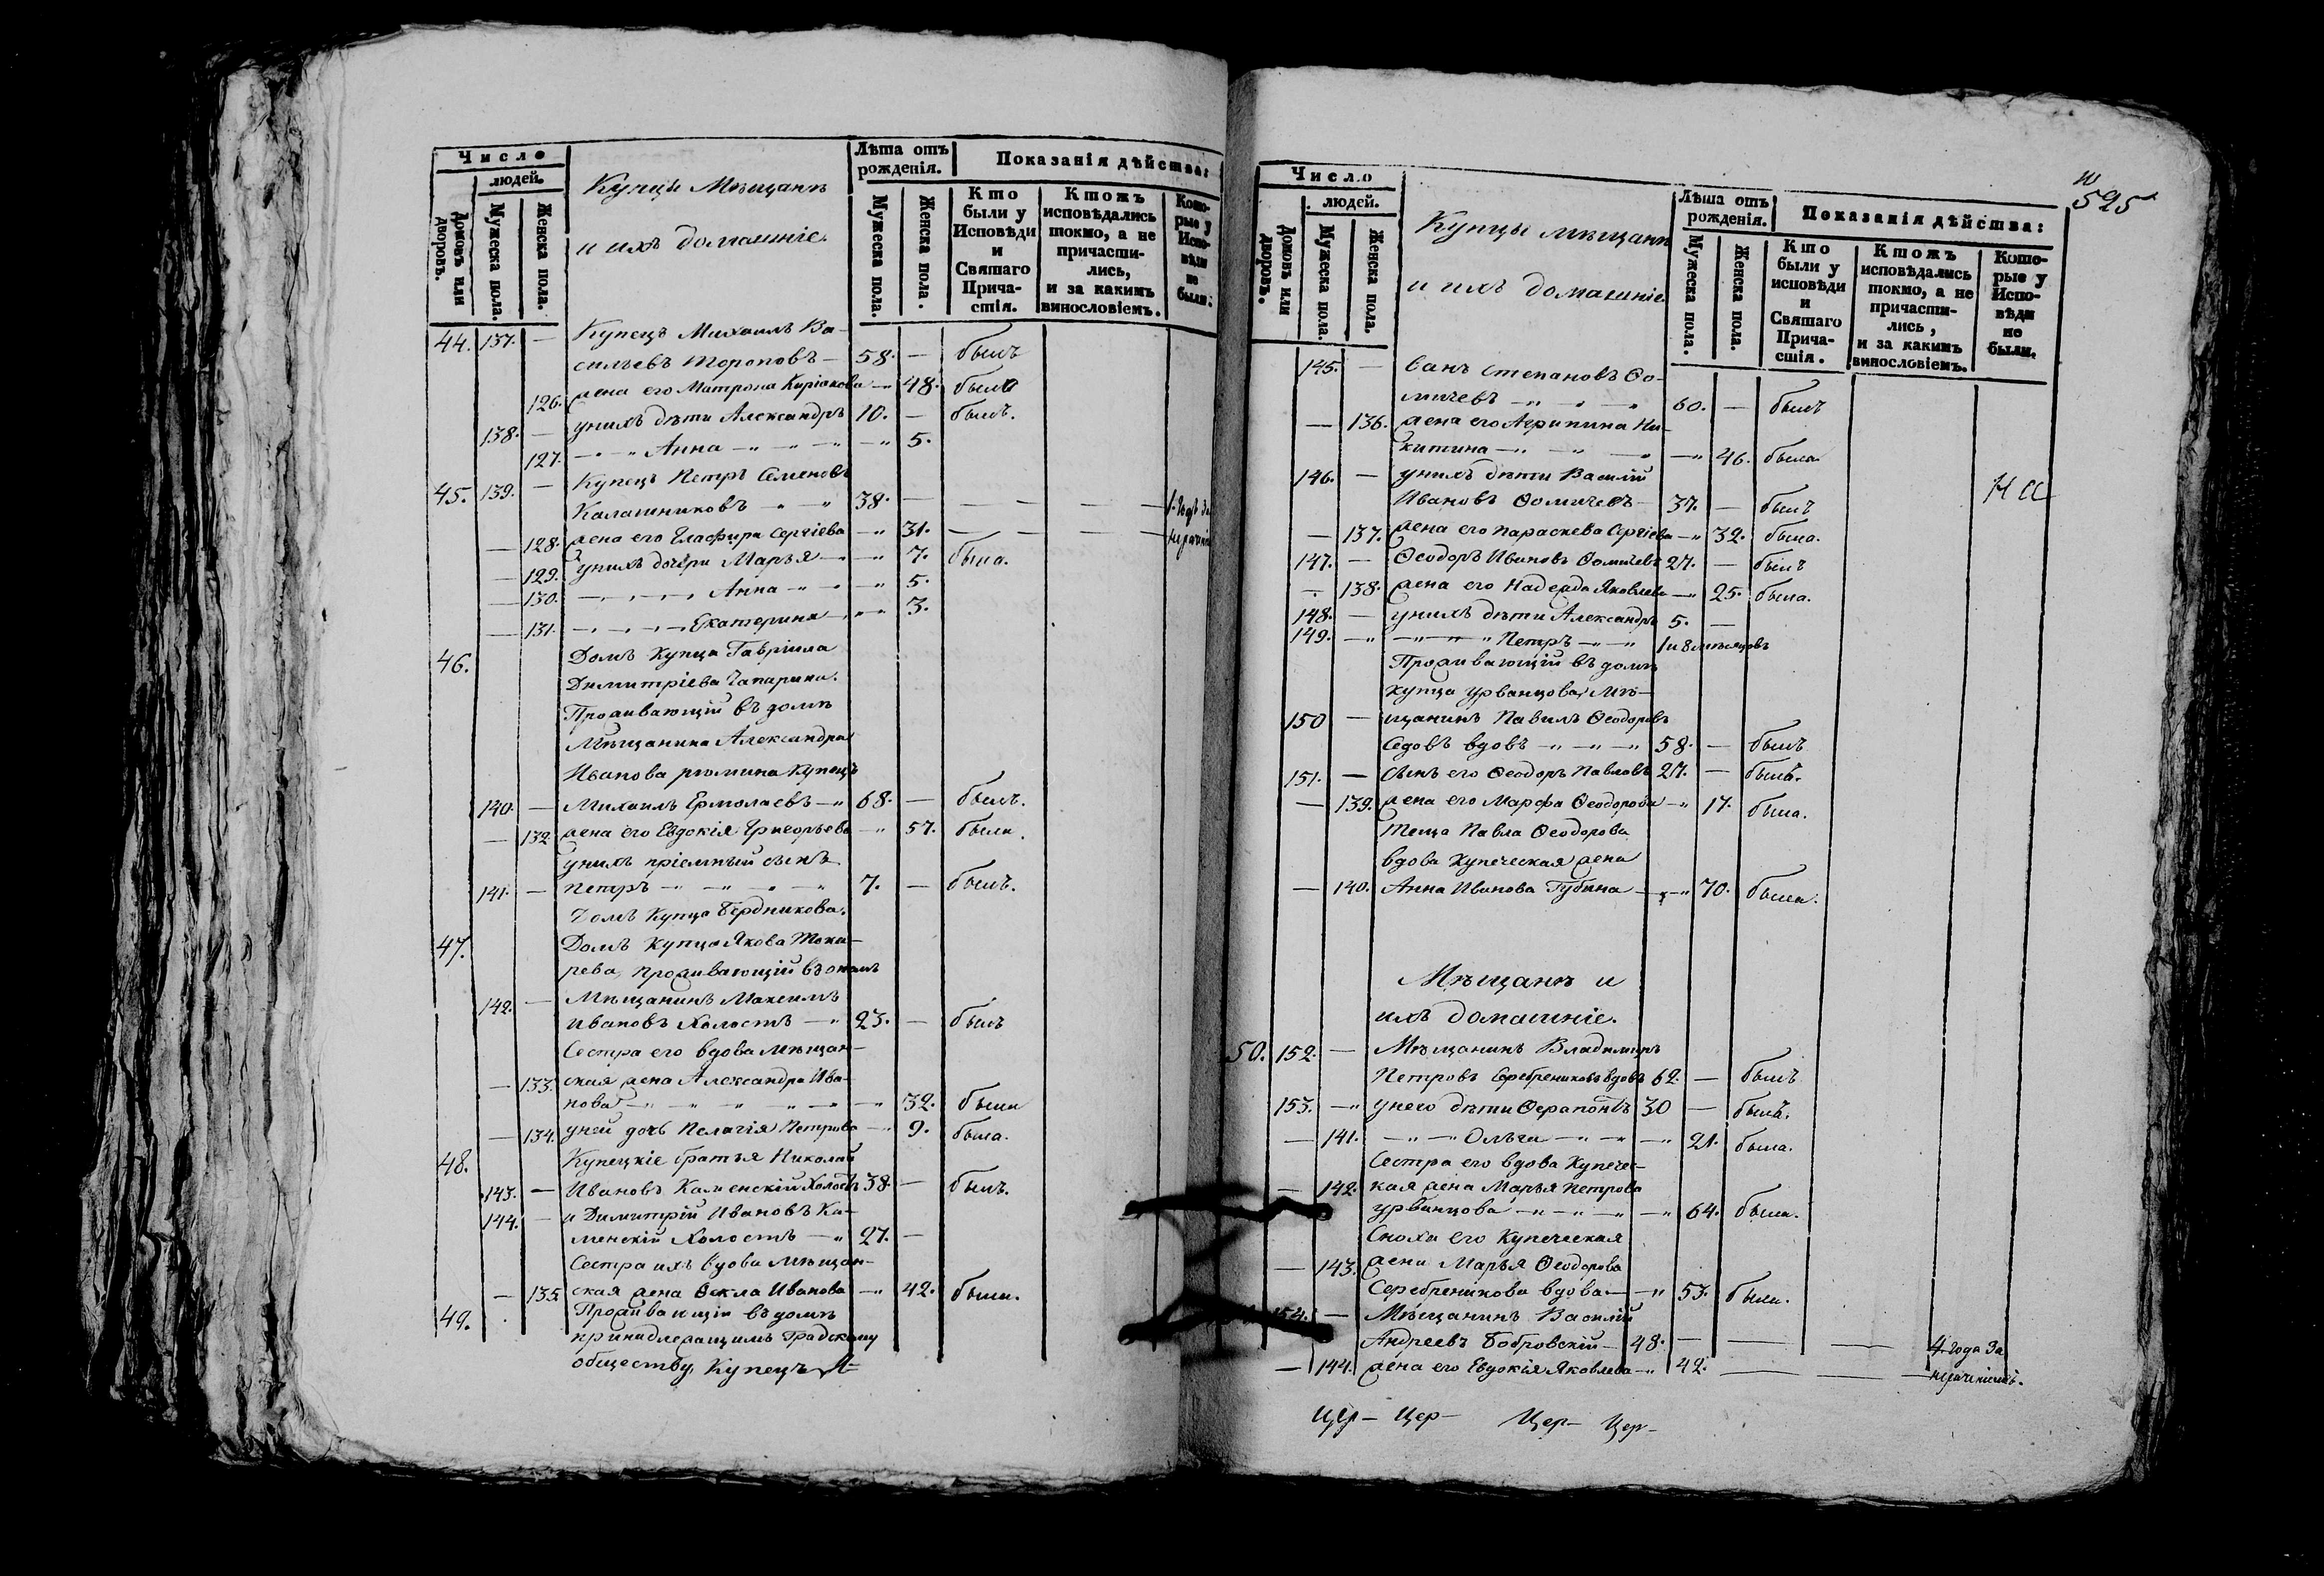 Число
людей.
Домовъ или дворовъ.
Мужеска пола.
Женска пола.
Купцы Мѣщанѣ
и ихъ домашніе.
Лѣта отъ рожденія.
Мужеска пола.
Женска пола.
Показанія дѣйства:
Кто были у Исповѣди и Святаго Причастія.
Ктожъ исповѣдались токмо, а не причастились, и за какимъ винословіемъ.
Которые у Исповѣди не были.
44. 137. — Купецъ Михаилъ Ва-
сильевъ Тороповъ — 58. — былъ
126. жена его Матрона Киріакова — 48. была
138. — унихъ дѣти Александръ 10. — былъ.
127. Анна 5.
45. 139. — Купецъ Петръ Семеновъ
Калашниковъ 38. — — —
— 128. жена его Глафира Сергіева 31. — — —
— 129. унихъ дочери Марья 7. была.
— 130. Анна 5.
— 131. Екатерина 3.
46. Домъ Купца Гавріила
Димитріева Чапарина.
Проживающій въ домѣ
Мѣщанина Александра
Иванова рюмина Купецъ
140. — Михаилъ Ермолаевъ 68. — былъ.
— 132. жена его Евдокія Григорьева 57. была.
унихъ пріемный сынъ
141. — Петръ 7. — былъ.
Домъ Купца Бердникова.
47. Домъ Купца Якова Тока-
рева, проживающій въ ономъ
142. — Мѣщанинъ Максимъ
Ивановъ Холостъ 23. — былъ
Сестра его вдова Мѣщан-
— 133. ская жена Александра Ива-
нова 32. была
— 134. уней дочь Пелагія Петрова 9. была.
48. Купецкіе братья Николай
143. — Ивановъ Каменскій Холостъ 38. — былъ.
144. — и Димитрій Ивановъ Ка-
менскій Холостъ 27. —
Сестра ихъ вдова Мѣщан-
— 135. ская жена Ѳекла Иванова 42. была.
49. Проживающій въ домѣ
принадлежащимъ Градскому
обществу, Купецъ И=
595
Число
людей.
Домовъ или дворовъ.
Мужеска пола.
Женска пола.
Купцы мѣщанѣ
и ихъ домашніе.
Лѣта отъ рожденія.
Мужеска пола.
Женска пола.
Показанія дѣйства:
Кто были у исповѣди и Святаго Причастія.
Ктожъ исповѣдались токмо, а не причастились, и за какимъ винословіемъ.
Которые у Исповѣди не были.
145. — ванъ Степановъ Ѳо-
мичевъ 60. — былъ
— 136. жена его Агрипина Ни-
китина 46. была
146. — унихъ дѣти Василій
Ивановъ Ѳомичевъ 37. — былъ
— 137. жена его Параскева Сергіева 32. была.
147. — Ѳеодоръ Ивановъ Ѳомичевъ 27. — былъ
138. жена его Надежда Яковлева 25. была.
148. — унихъ дѣти Александръ 5. —
149. Петръ 1 и 8 мѣсяцовъ
Проживающій въ домѣ
купца Урванцова, Мѣ-
150 — щанинъ Павилъ Ѳеодоровъ
Седовъ вдовъ 58. — былъ
151. — Сынъ его Ѳеодоръ Павловъ 27. — былъ.
— 139. жена его Марфа Ѳеодорова 17. была.
Теща Павла Ѳеодорова
вдова Купеческая жена
— 140. Анна Иванова Губина 70. была.
Мѣщанѣ и
ихъ домашніе.
50. 152. — Мѣщанинъ Владимиръ
Петровъ Серебрениковъ вдовъ 62. — былъ
153. унего дѣти Ѳерапонтъ 30 — былъ.
— 141. Ольга 21. была.
Сестра его вдова Купечес-
— 142. кая жена Марья Петрова
Урванцова 64. была.
Сноха его Купеческая
— 143. жена Марья Ѳеодорова
Серебреникова вдова 53. была.
154. — Мѣщанинъ Василій
Андреевъ Бобровскій 48. — — — 4 года За
— 144. жена его Евдокія Яковлева 42. — — нераченіемъ.
Цер- Цер- Цер- Цер-